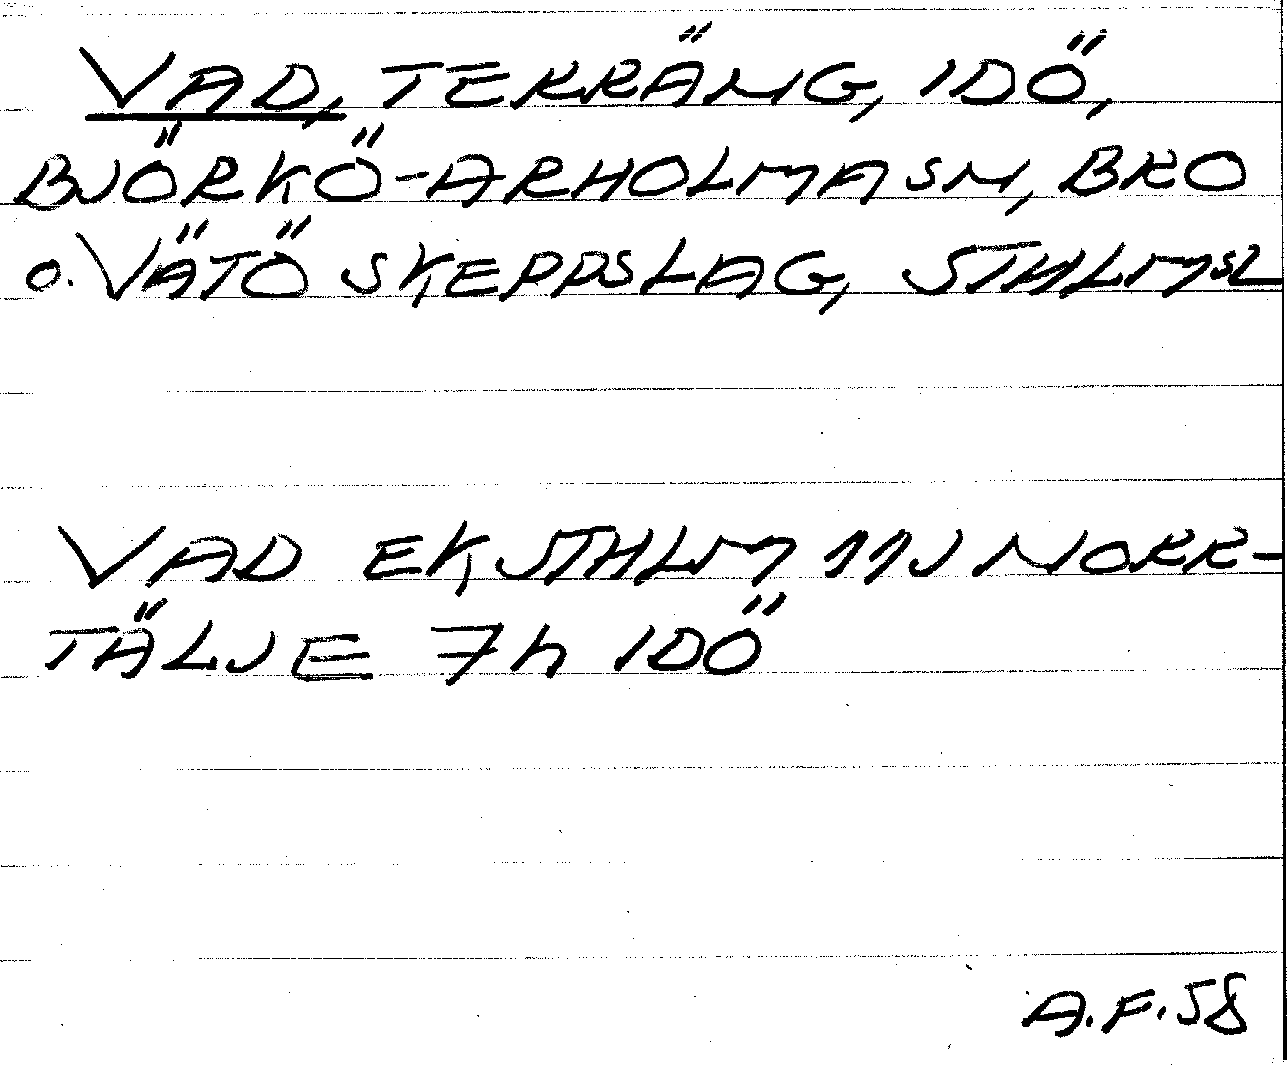 VAD, TERRÄNG, IDÖ,
BJÖRKÖ-ARHOLMA SN, BRO
o. VÄTÖ SKEPPSLAG, STHLMSL
VAD EK, STHLM 11J NORR-
TÄLJE 7h IDÖ
A.F. 58